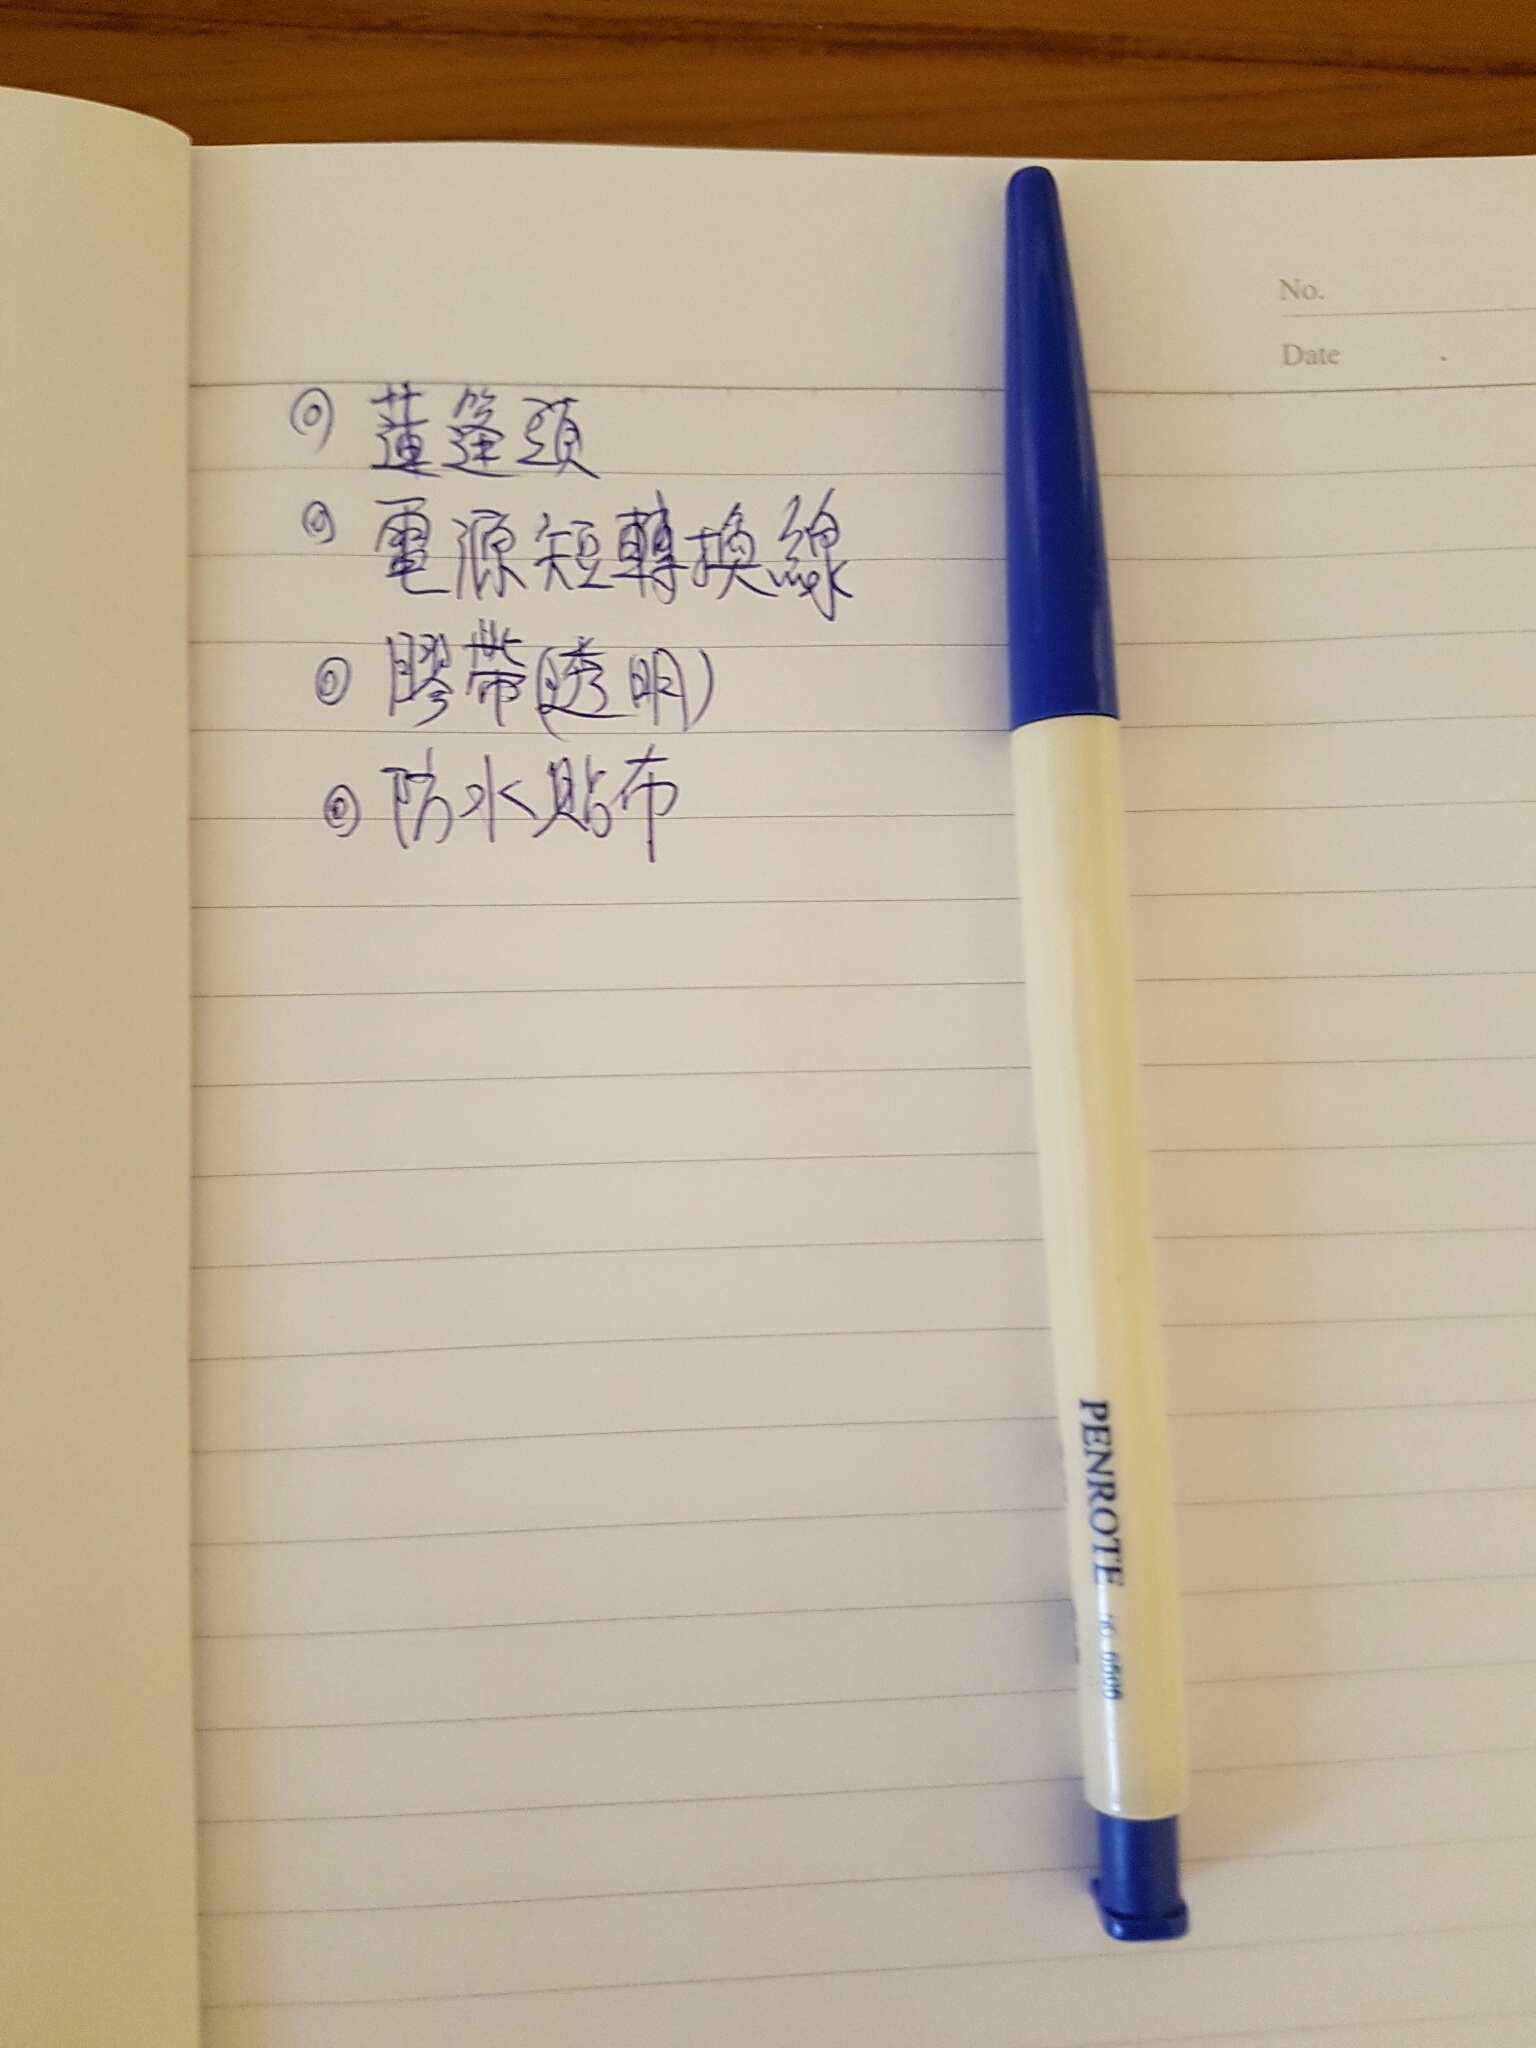 No.
Date
◎ 蓮篷頭
◎ 電源短轉換線
◎ 膠帶(透明)
◎ 防水貼布
PENROTE